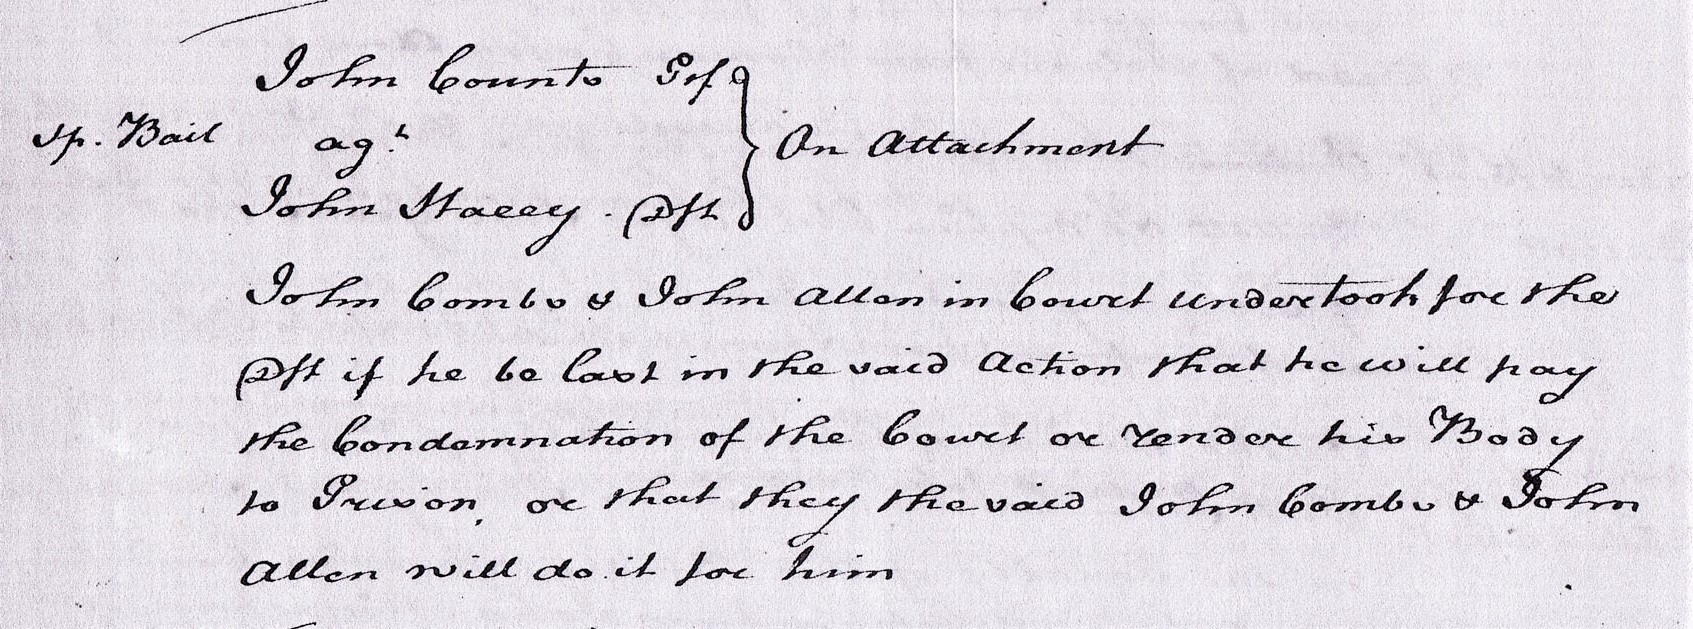 John Counts Plf
Sp. Bail agt On Attachment
John Stacey. Dft
John Combs & John Allen in Court undertook for the
Dft if he be cast in the said Action that he will pay
the Condemnation of the Court or render his Body
to Prison, or that they the said John Combs & John
Allen will do it for him